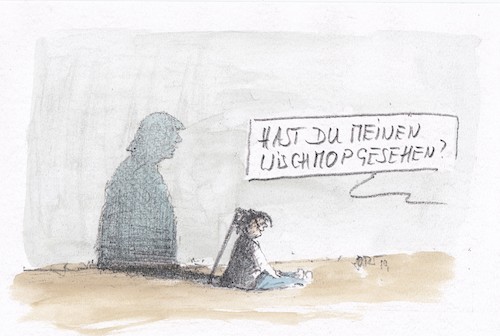 HAST DU MEINEN
WISCHMOP GESEHEN?